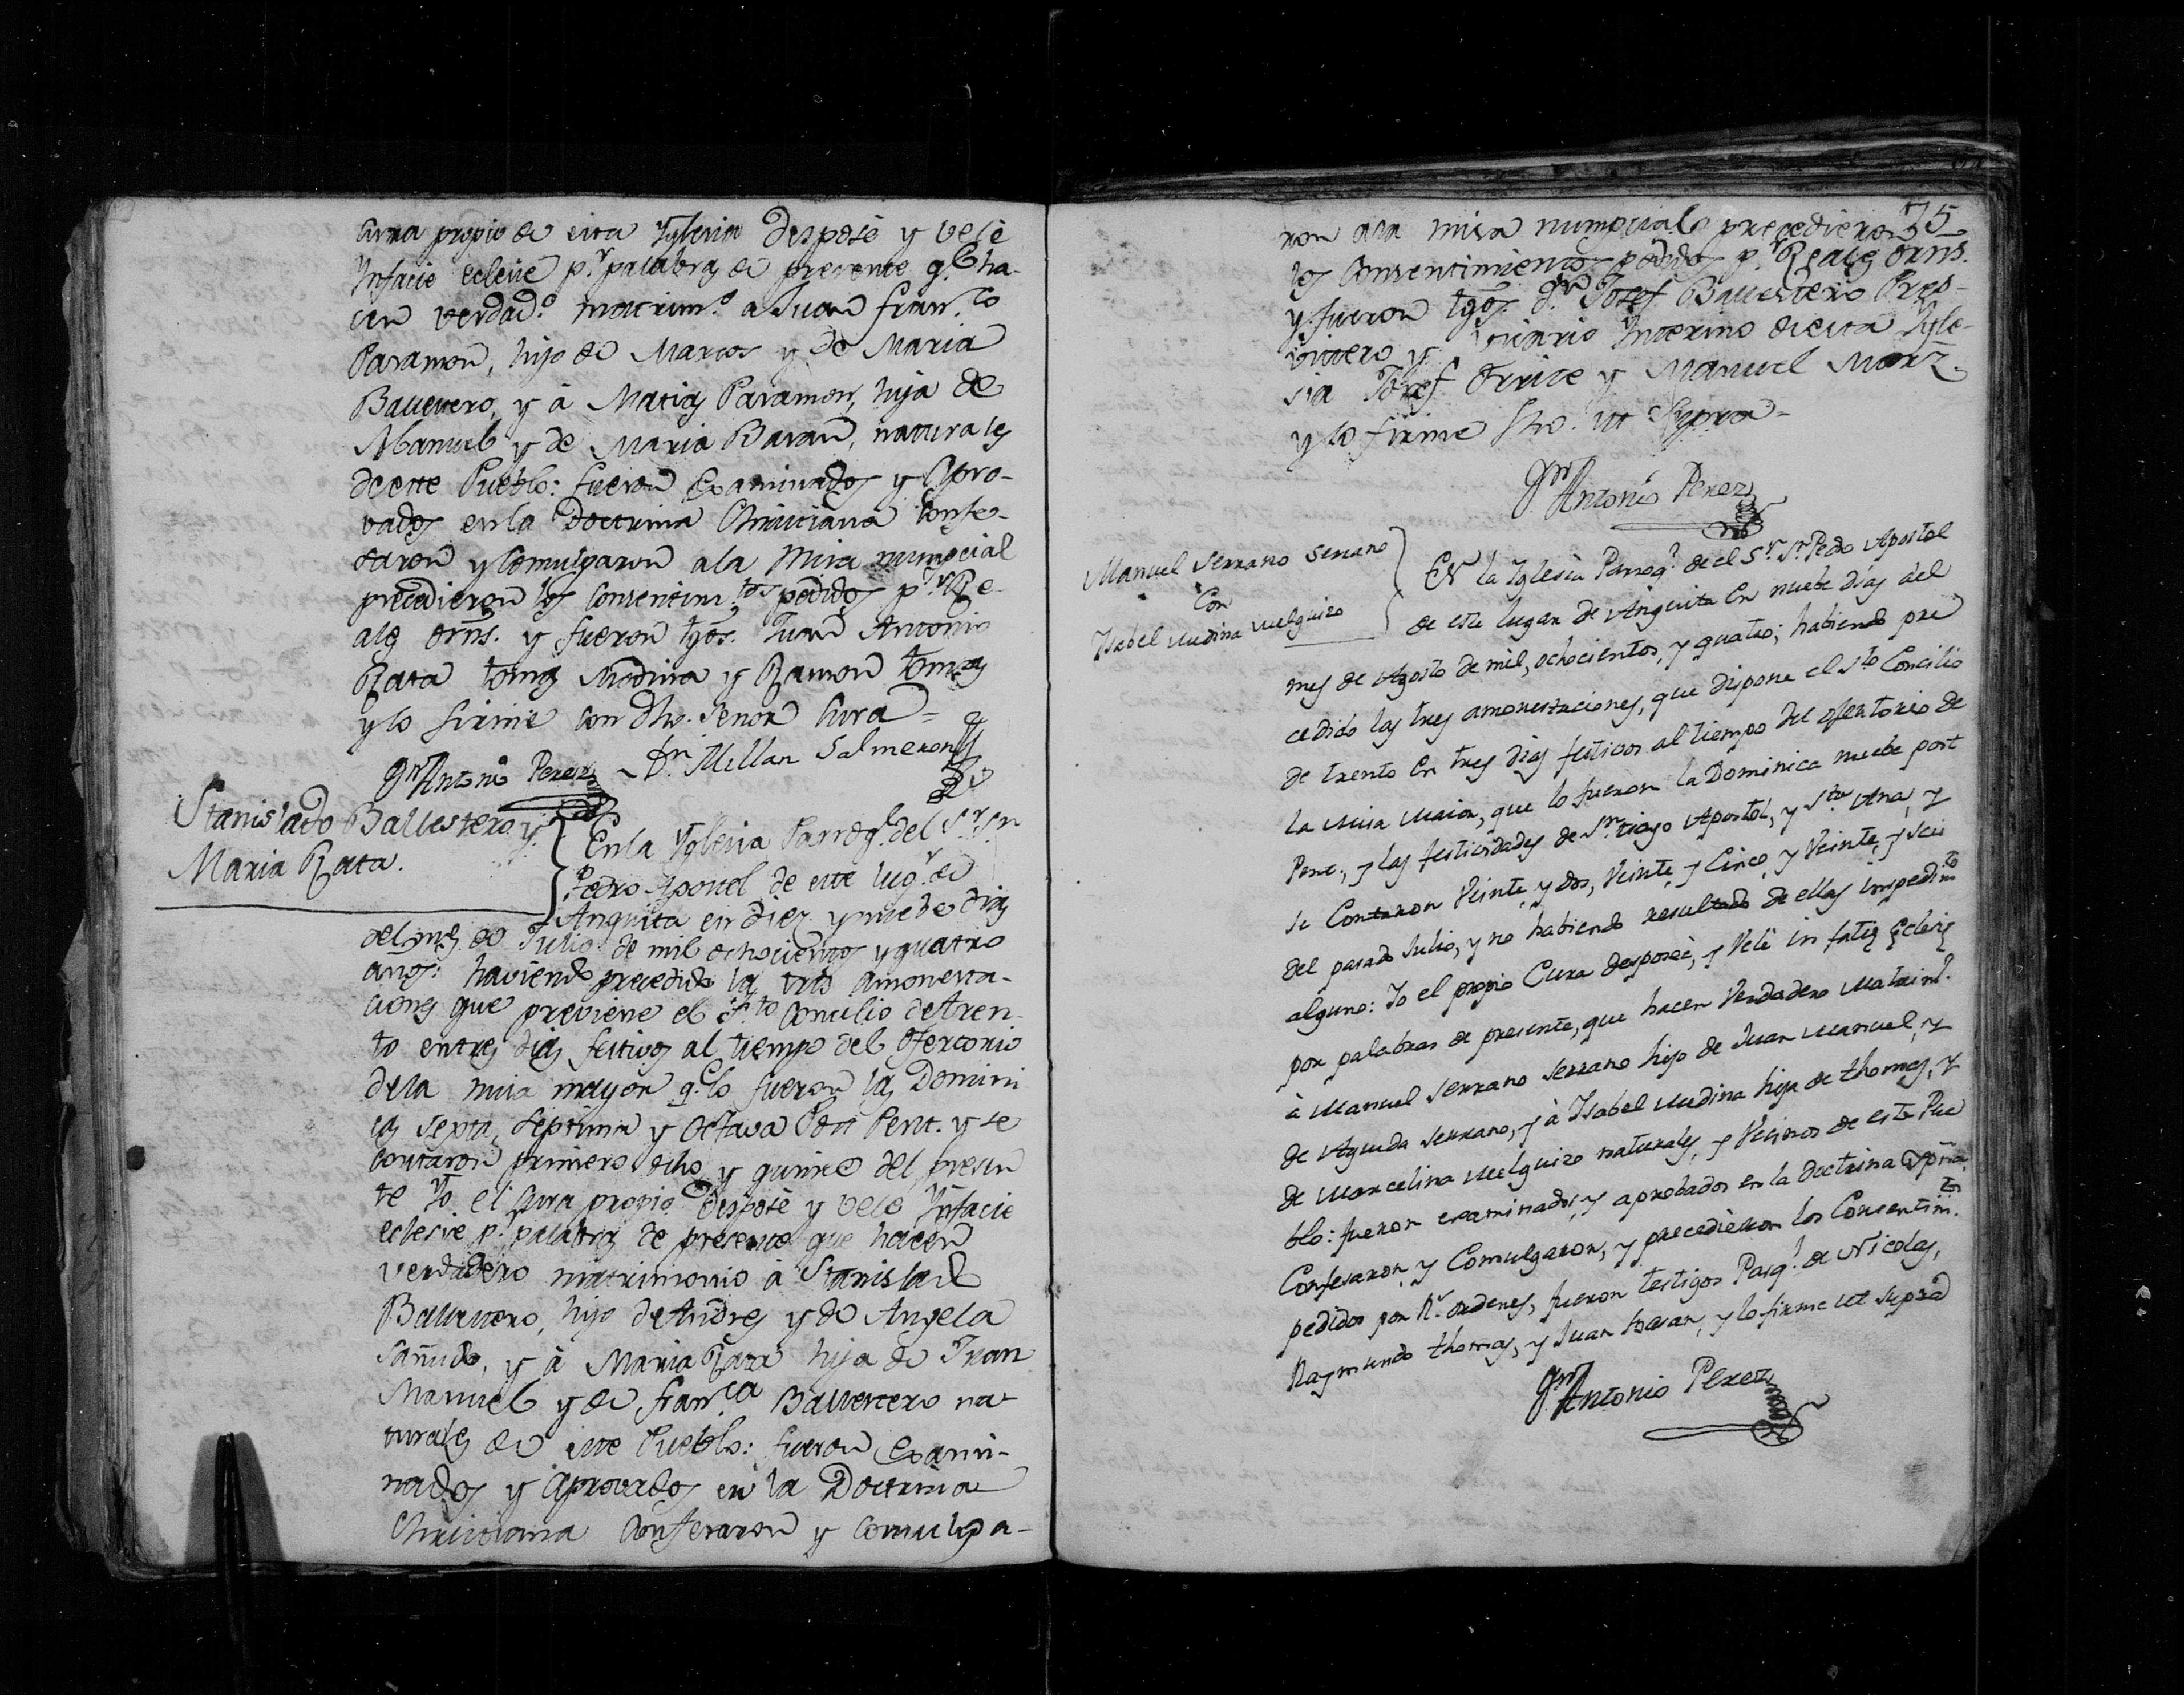 Cura propio de esta Yglesia Desposè y velè
Ynfacie eclesie p.r palabras de presente q.e ha-
cen verdad.o matrim.o a Juan fran.co
Paramon, hijo de Marcos y de Maria
Ballestero, y à Matias Paramon, hija de
Manuel y de Maria Baran, naturales
deeste Pueblo: fueron Examinados y Apro-
vados enla Doctrina Christiana Confe-
saron y Comulgaron ala Misa numpcial
precedieron los Consentim.tos pedidos p.r Re-
ales Orns. y fueron tgos. Juan Antonio
Rata tomas Medina y Ramon tomas
y lo firmè con dho. Senor Cura =
Dn Anton.o Perez Dn. Millan Salmeron
Stanislado Ballestero y
Maria Rata.
Enla Yglesia Parroql. del S.r Sn
Pedro Apostol de este lug.r de
Anguita en diez y nuebe dias
del mes de Julio de mil ochocientos y quatro
años: haviendo precedido las tres amonesta-
ciones que previene el S.to Concilio deTren-
to entres dias festivos al tiempo del Ofertorio
dela misa mayor q.e lo fueron las Domini
cas septa, septima y Octava Post Pent. y se
contaron primero ocho y quince del presen
te Yo el Cura propio Desposè y velè Ynfacie
eclesie p.r palabras de presente que hacen
verdadero matrimonio à Stanislado
Ballestero, hijo deAndres y de Angela
Sañudo, y à Maria Rata hija de Juan
Manuel y de fran.ca Ballestero na
turales de este Pueblo: fueron Exami-
nados y Aprovados en la Doctrina
Christiana Confesaron y comulga-
75
ron ala misa numpcial precedieron
los Consentimientos pedidos p.r Reales Orns.
y fueron tgos. Dn. Josef Ballestero Pres-
vitero y Interino deesta Ygle-
sia Josef Orrite y Manuel Marz.
y lo firmè fho. ut Supra =
Dn Antonio Perez
Manuel Serrano Serrano
Con
Isabel Medina Melguizo
En la Iglesia Parroq.l de el S.r S.n Pedro Apostol
de este lugar de Anguita En nuebe dias del
mes de Agosto de mil, ochocientos, y quatro; habiendo pre
cedido las tres amonestaciones, que dispone el S.to Concilio
de trento En tres dias festivos al tiempo del ofertorio de
la Misa Maior, que lo fueron la Dominica nuebe post
Pent., y las festividades de S.n tiago Apostol, y S.ta Ana, y
se Contaron Veinte, y dos, Veinte, y Cinco, y Veinte, y Seis
del pasado Julio, y no habiendo resultado de ellas impedim.to
alguno: Yo el propio Cura desposè, y Velè in fatie Eclesie
por palabras de presente, que hacen Verdadero Matrim.o
à Manuel Serrano Serrano hijo de Juan Manuel, y
de Agueda Serrano, y à Isabel Medina hija de thomas, y
de Marcelina Melguizo naturales, y Vecinos de este Pue
blo: fueron examinados, y aprobados en la doctrina Xpna.
Confesaron, y Comulgaron, y precedieron los Consentim.tos
pedidos por R.s ordenes, fueron testigos Pasq.l de Nicolas,
Raymundo thomas, y Juan Baran, y lo firme ut supra
Dn Antonio Perez